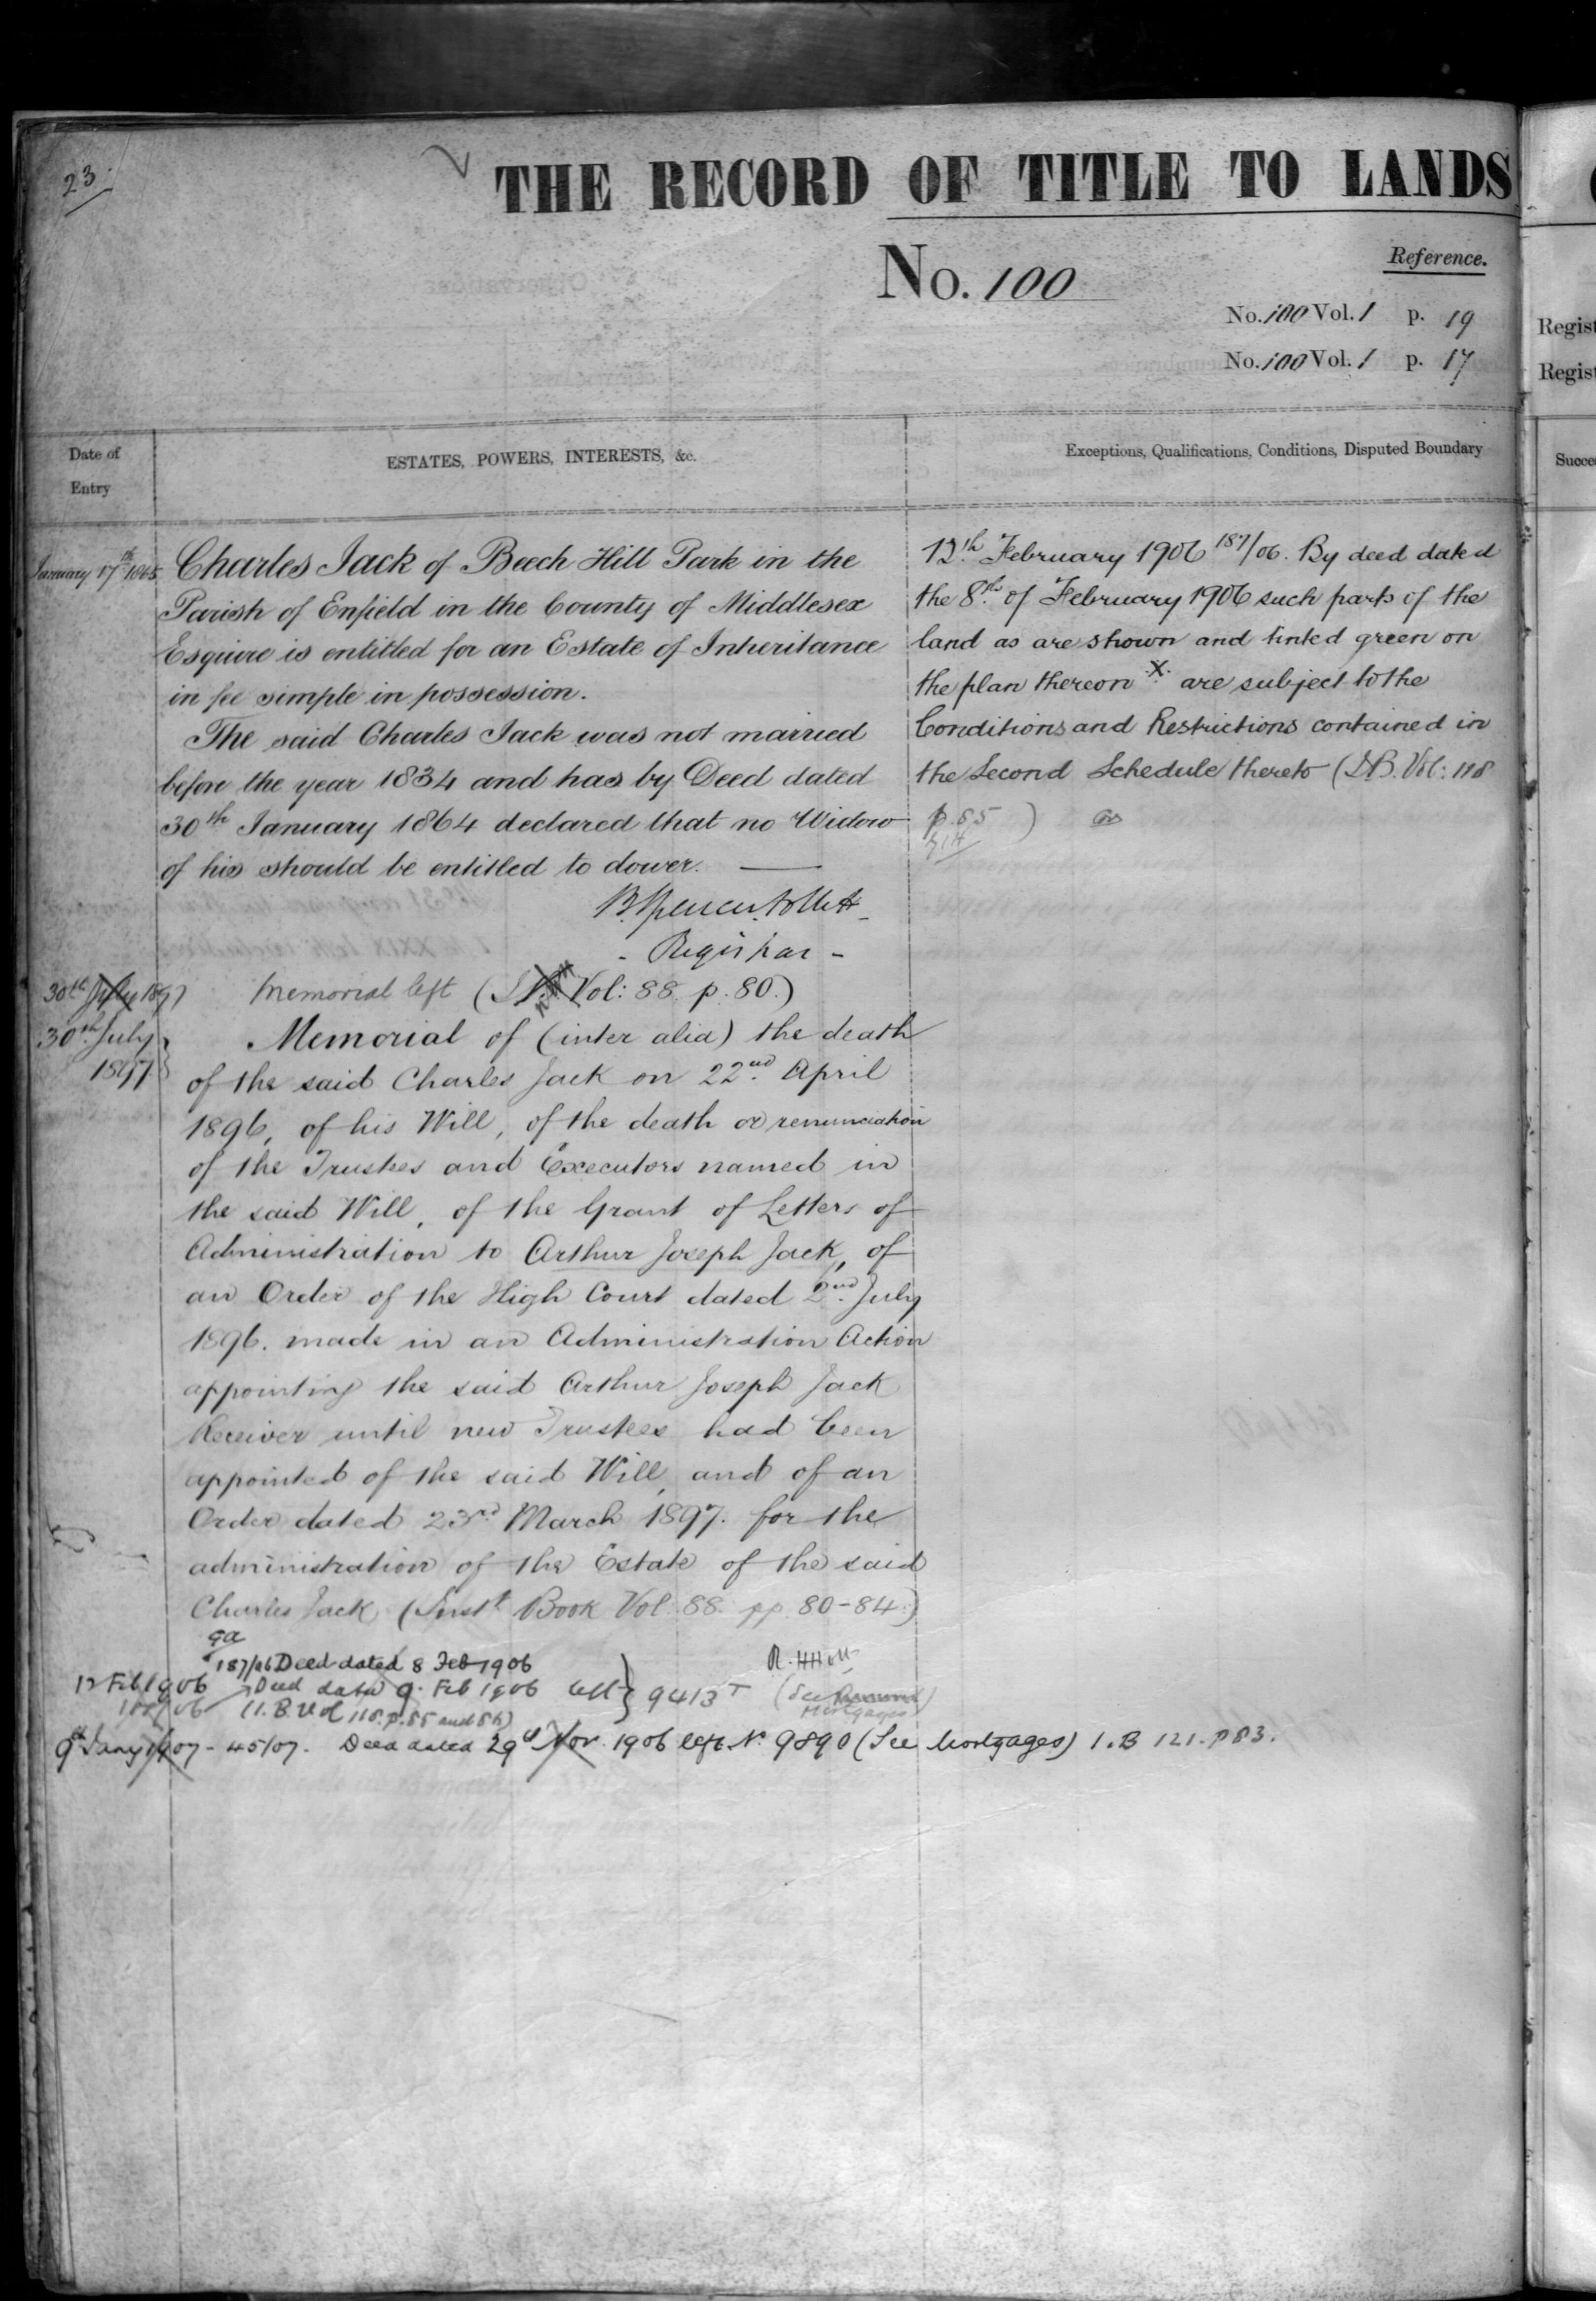 23.
THE RECORD OF TITLE TO LANDS
No. 100
Reference.
No. 100 Vol. 1 p. 19
No. 100 Vol. 1 p. 17
Regist
Regist
Date of
Entry
ESTATES, POWERS, INTERESTS, &c.
Exceptions, Qualifications, Conditions, Disputed Boundary
Succe
January 17th 1865
Charles Jack of Beech Hill Park in the
Parish of Enfield in the County of Middlesex
Esquire is entitled for an Estate of Inheritance
in fee simple in possession.
The said Charles Jack was not married
before the year 1834 and has by Deed dated
30th January 1864 declared that no Widow
of his should be entitled to dower.
B. Spencer Follett
- Registrar -
12th February 1906 187/06. By deed dated
the 8th of February 1906 such parts of the
land as are shown and tinted green on
the plan thereon X are subject to the
Conditions and Restrictions contained in
the Second Schedule thereto (I.B. Vol: 118
p. 85)
30th July 1897
Memorial left (I.B. Vol: 88. p. 80.)
30th July
1897
Memorial of (inter alia) the death
of the said Charles Jack on 22nd April
1896, of his Will, of the death or renunciation
of the Trustees and Executors named in
the said Will, of the Grant of Letters of
Administration to Arthur Joseph Jack, of
an Order of the High Court dated 2nd July
1896. made in an Administration Action
appointing the said Arthur Joseph Jack
Receiver until new Trustees had been
appointed of the said Will, and of an
Order dated 23rd March 1897. for the
administration of the Estate of the said
Charles Jack (Inst Book Vol. 88. pp. 80-84.)
187/06 Deed dated 8 Feb 1906
12 Feb 1906
Deed dated 9. Feb 1906 left } 9413 T (See Mortgages)
188/06 (I.B. Vol 118. p. 85 and 86)
9th Jany 1907 - 45/07. Deed dated 29th Nov. 1906 left No. 9890 (See Mortgages) I.B 121. p 83.